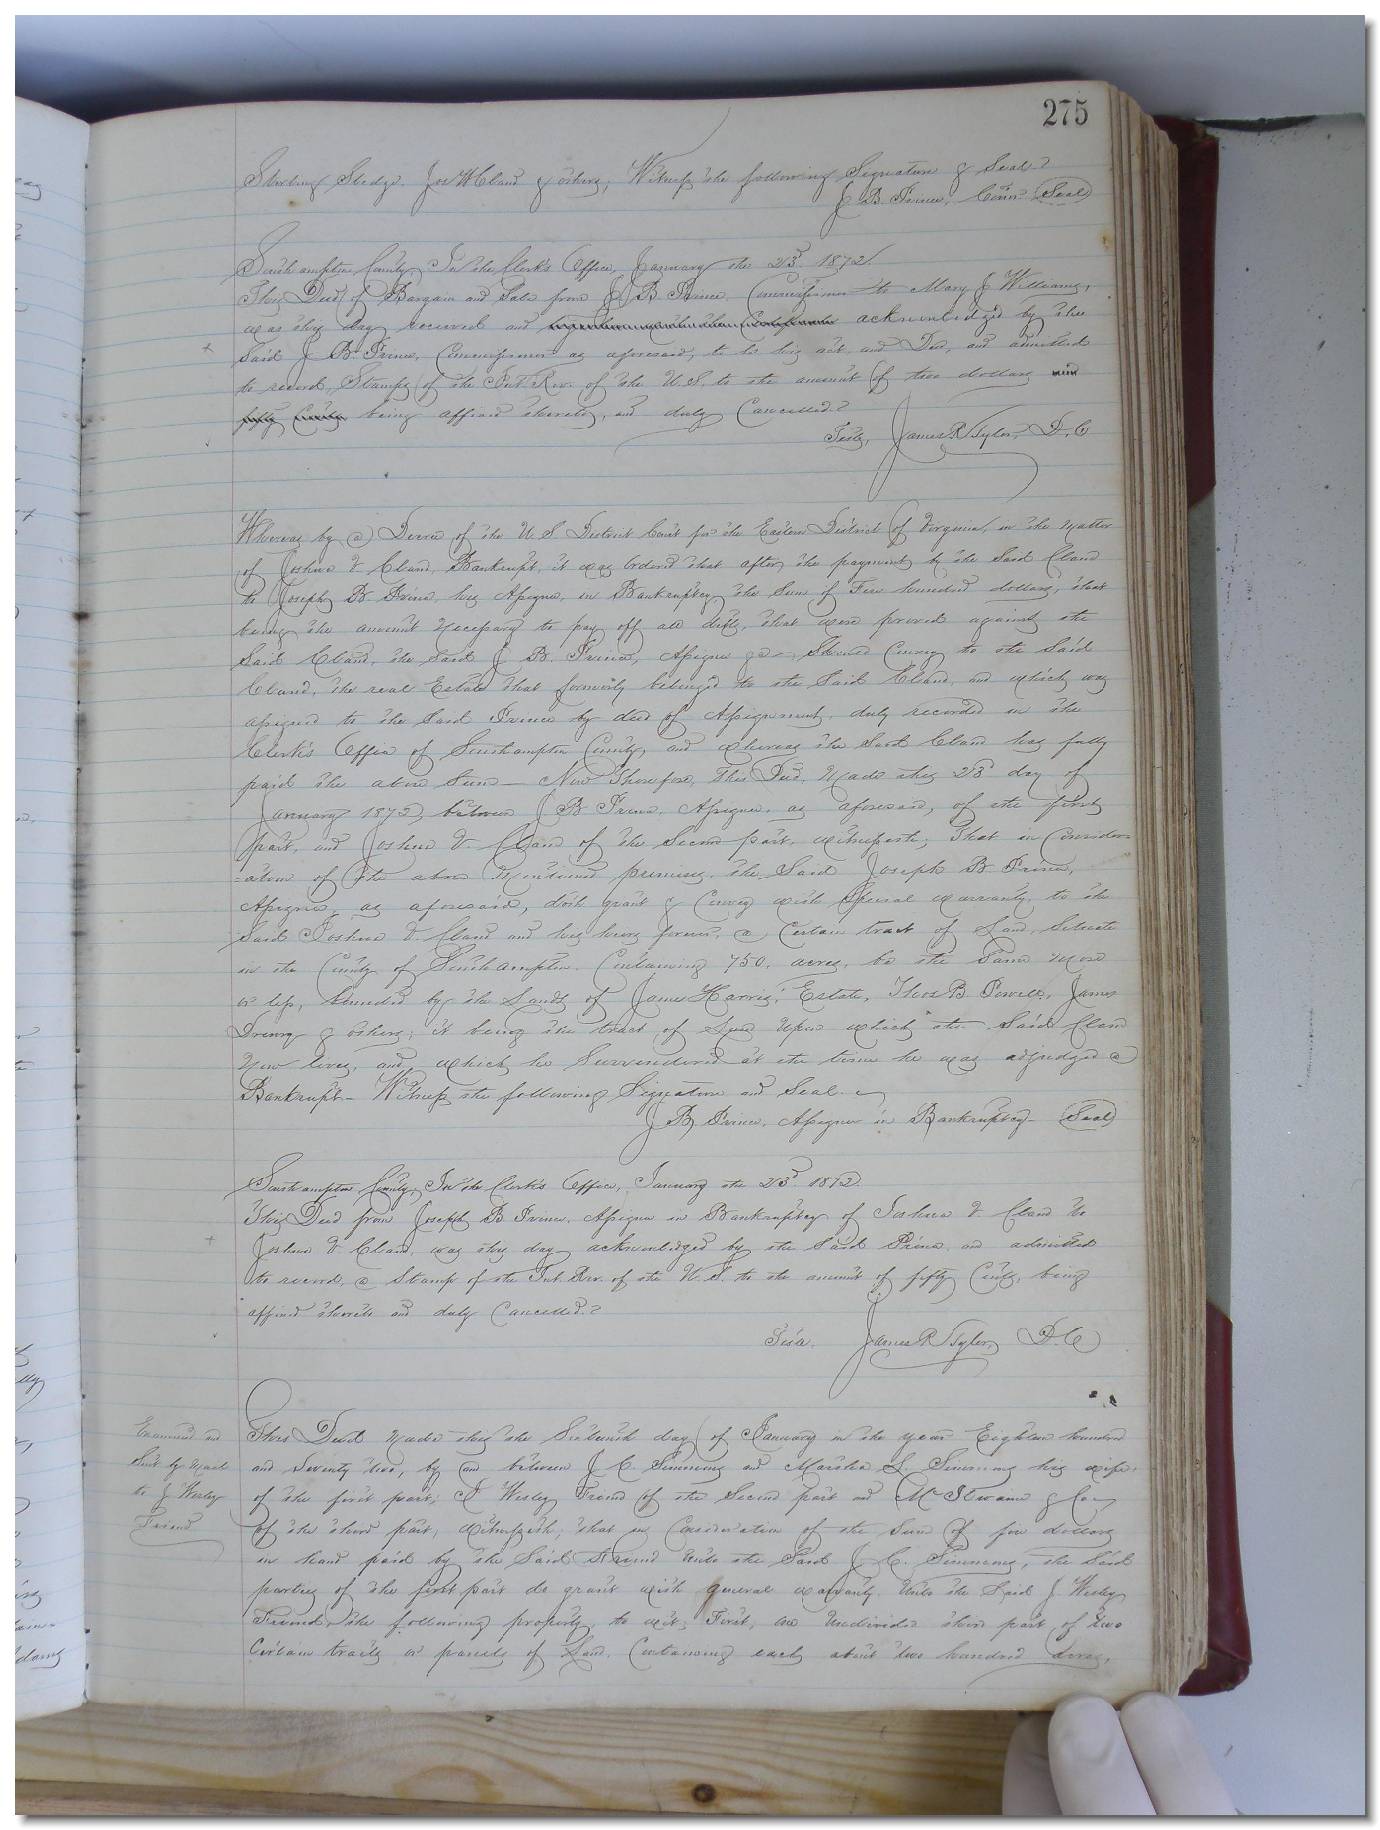 275
Sterling Sledge, Jos W Claud & others, Witness the following Signature & Seal
J B Prince, Comr (Seal)
Southampton County, In the Clerk's Office, January the 23d 1872.
This Deed of Bargain and Sale from J. B. Prince, Commissioner to Mary J Williams,
was this day received and acknowledged by the
said J. B. Prince, Commissioner as aforesaid, to be his act and Deed, and admitted
to record, Stamps of the Int Rev. of the U. S. to the amount of two dollars and
fifty Cents being affixed thereto, and duly Cancelled.
Teste, James R Tyler, D. C
Whereas by a Decree of the U S District Court for the Eastern District of Virginia, in the Matter
of Joshua V. Claud, Bankrupt, it was Ordered that after the payment by the Said Claud
to Joseph B. Prince, his Assignee, in Bankruptcy the Sum of Five hundred dollars, that
being the amount Necessary to pay off all debts, that were proved against the
Said Claud, the Said J. B. Prince, Assignee &c Should Convey to the Said
Claud, the real Estate that formerly belonged to the Said Claud, and which was
assigned to the Said Prince by deed of Assignment, duly recorded in the
Clerk's Office of Southampton County, and whereas the Said Claud has fully
paid the above Sum — Now Therefore, This Deed, Made this 23d day of
January 1872, between J B Prince, Assignee, as aforesaid, of the first
part, and Joshua V. Claud of the Second part, witnesseth, That in Consider-
=ation of the above Mentioned premises, the Said Joseph B Prince,
Assignee, as aforesaid, doth grant & Convey with Special warranty, to the
Said Joshua V. Claud and his heirs forever, a Certain tract of Land, Situate
in the County of Southampton, Containing 750. acres, be the Same More
or less, bounded by the Lands of James Harris' Estate, Thos B. Powell, James
Drewry & others; it being the tract of Land Upon which the Said Claud
Now lives, and which he Surrendered at the time he was adjudged a
Bankrupt — Witness the following Signature and Seal.
J. B. Prince, Assignee in Bankruptcy — (Seal)
Southampton County, In the Clerk's Office, January the 23d 1872.
This Deed from Joseph B Prince, Assignee in Bankruptcy of Joshua V Claud to
Joshua V Claud, was this day acknowledged by the Said Prince, and admitted
to record, a Stamp of the Int. Rev. of the U. S. to the amount of fifty Cents, being
affixed thereto and duly Cancelled.
Teste. James R Tyler, D. C
Examined and
Sent by Mail
to J Wesley
Friend
This Deed Made this the Sixteenth day of January in the year Eighteen hundred
and Seventy two, by and between J. C. Simmons and Martha L. Simmons his wife,
of the first part; J Wesley Friend of the Second part and McIlwaine & Co
of the third part, witnesseth, that in Consideration of the Sum of five dollars
in hand paid by the Said Friend Unto the Said J. C. Simmons, the Said
parties of the first part do grant with general warranty Unto the Said J. Wesley
Friend, the following property, to wit; First, An Undivided third part of two
Certain tracts or parcels of Land, Containing each about two hundred Acres,